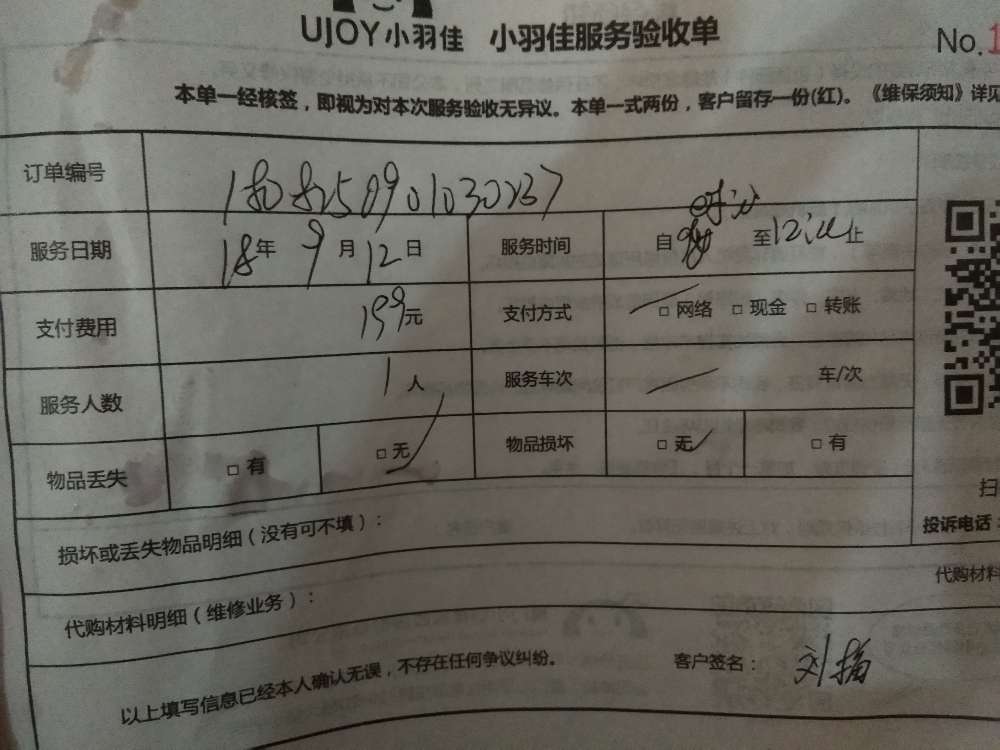 UJOY小羽佳 小羽佳服务验收单
No.1
本单一经核签，即视为对本次服务验收无异议。本单一式两份，客户留存一份(红)。《维保须知》详见
订单编号
服务日期 18年 9月 12日 服务时间 自 至12 止
支付费用 199元 支付方式 □ 网络 □ 现金 □ 转账
服务人数 1人 服务车次 车/次
物品丢失 □ 有 □ 无 物品损坏 □ 无 □ 有
扫
损坏或丢失物品明细（没有可不填）： 投诉电话：
代购材料明细（维修业务）： 代购材料
以上填写信息已经本人确认无误，不存在任何争议纠纷。 客户签名： 刘